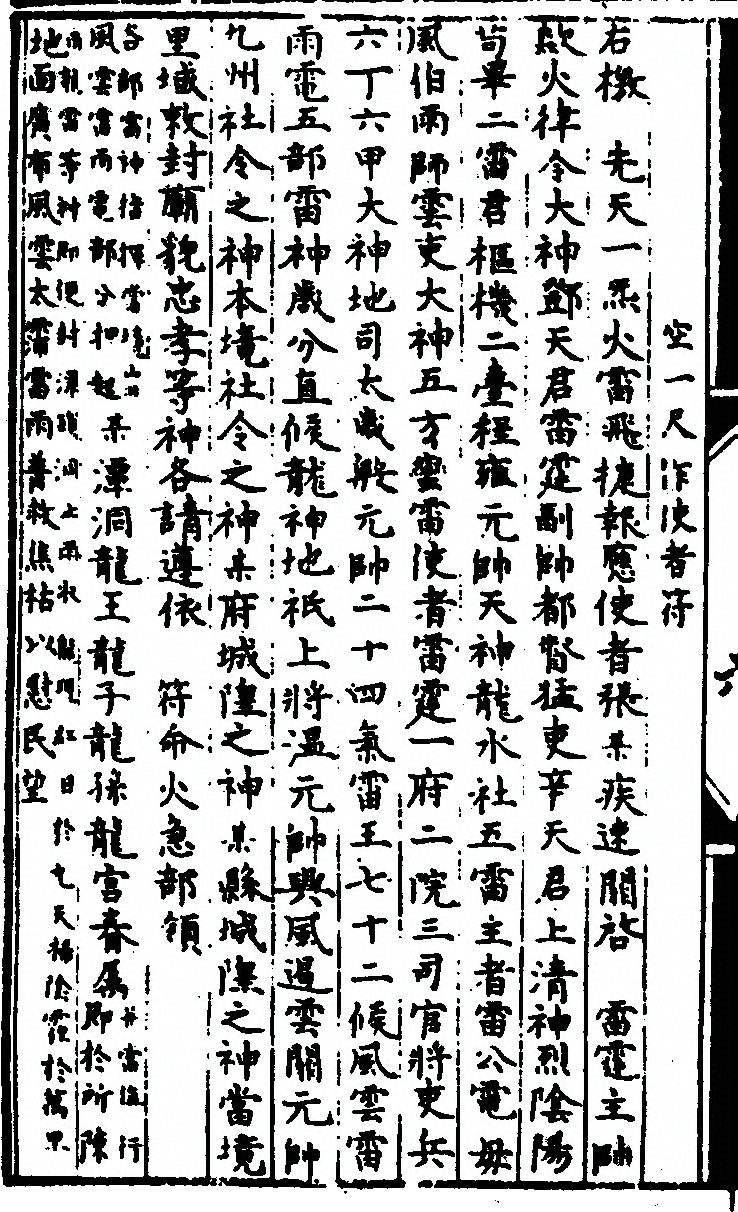 空一尺作使者符
右檄　先天一炁火雷飛捷報應使者張某疾速關啓　雷霆主帥
欻火律令大神鄧天君雷霆副帥都督猛吏辛天君上清神烈陰陽
苟畢二雷君樞機二臺程雍元帥天神龍水社五雷主者雷公電母
風伯雨師雲吏大神五方蠻雷使者雷霆一府二院三司官將吏兵
六丁六甲大神地司太歲殷元帥二十四氣雷王七十二候風雲雷
雨電五部雷神歲分直候龍神地祇上將溫元帥興風遏雲關元帥
九州社令之神本境社令之神某府城隍之神某縣城隍之神當境
里域敕封廟貌忠孝等神各請遵依　符命火急部領
各部雷神指揮當境山川
風雲雷雨電部分扣起某潭洞龍王龍子龍孫龍宮眷屬
即於所陳
地面廣布風雲大霈雷雨普救焦枯以慰民望